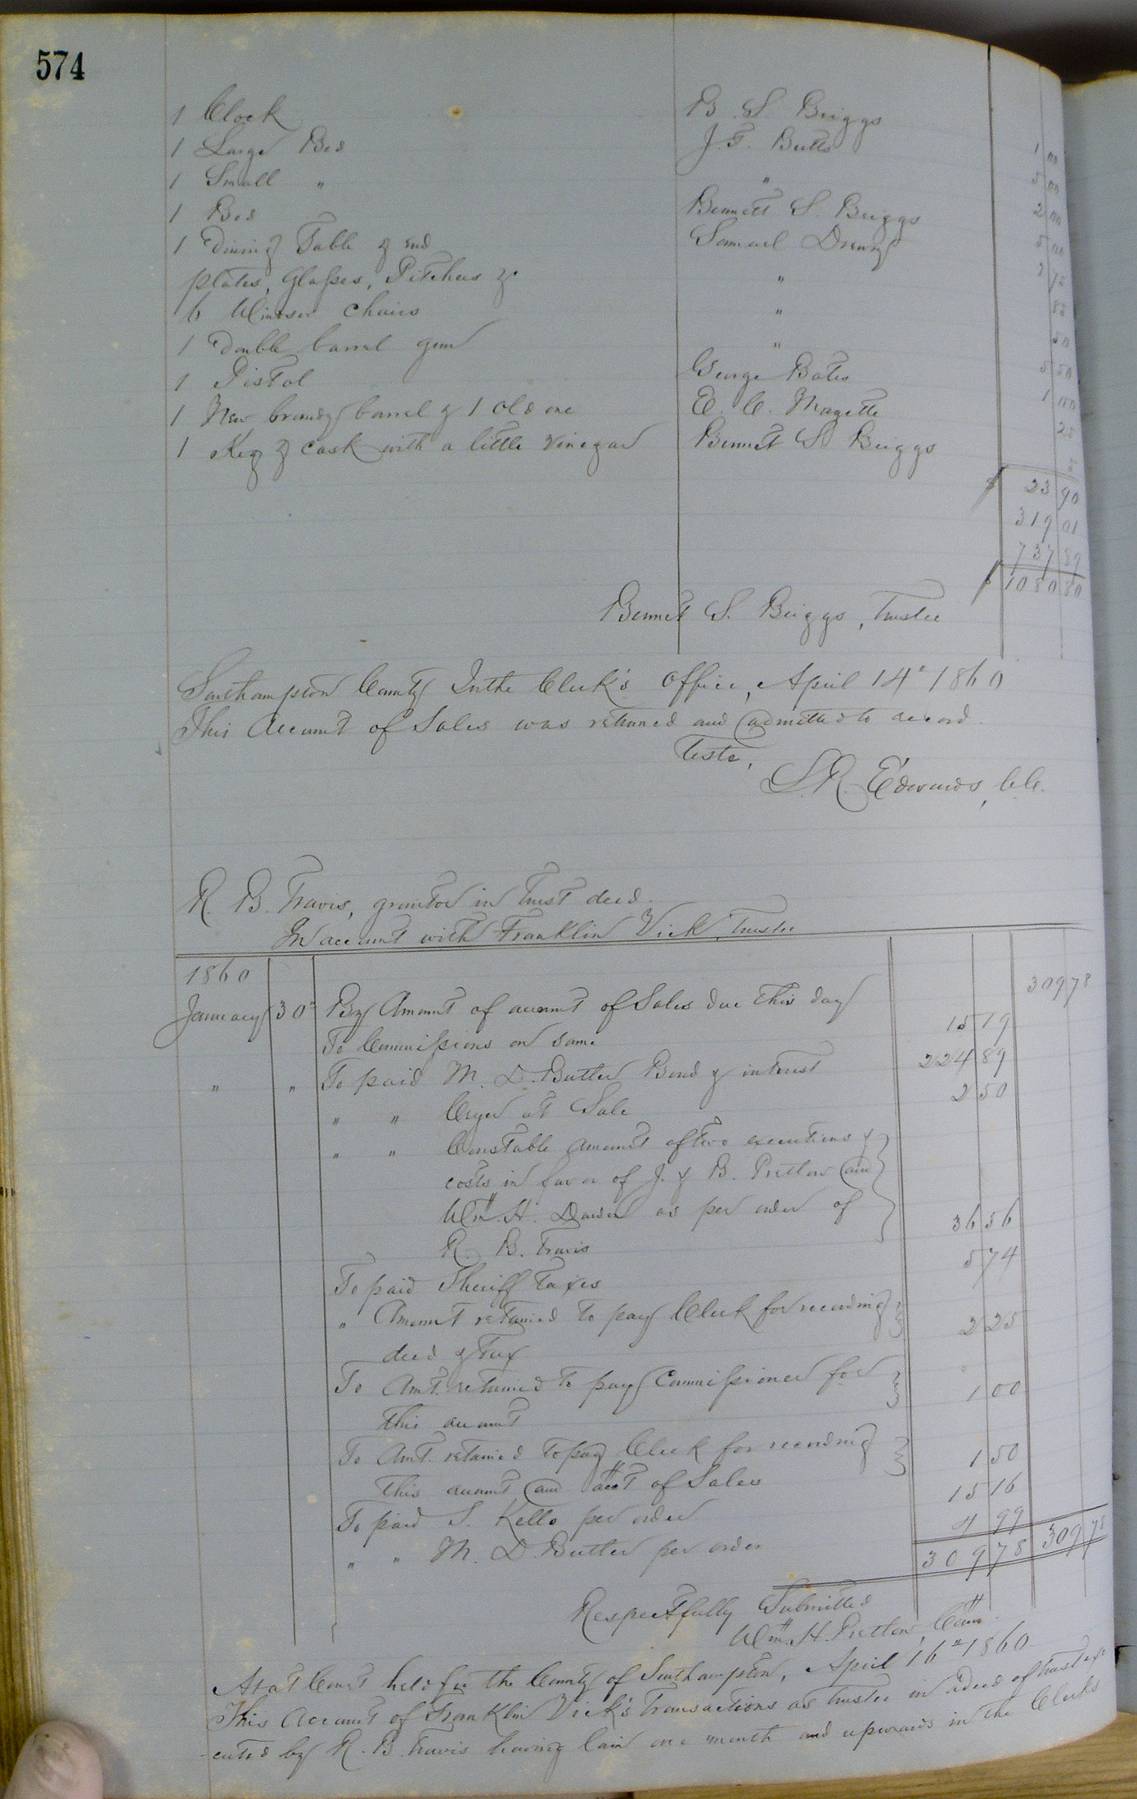 574
1 Clock B. S. Briggs 1 00
1 Large Bed J. T. Butts 5 00
1 Small " " 2 00
1 Bed Bennett S. Briggs 5 00
1 Dining Table & end Samuel Drewry 75
plates, Glasses, Pitchers & "
6 Windsor chairs " 50
1 Double barrel gun " 5 50
1 Pistol George Bates 1 00
1 New brandy barrel & 1 old one E. C. Magette 25
1 Keg & cask with a little vinegar Bennet S. Briggs 5
$ 23 90
319 01
737 89
$ 1080 80
Bennet S. Briggs, Trustee
Southampton County In the Clerk's Office, April 14th 1860
This Account of Sales was returned and admitted to record.
Teste,
L. R. Edwards, C.C.
R. B. Travis, grantor in trust deed.
In account with Franklin Vick, Trustee
1860
January 30th By Amount of account of Sales due this day 309 78
To Commissions on same 15 19
" " To paid M. D. Butler Bond & interest 224 89
" " Cryer at Sale 2 50
" " Constable amount of two executions &
costs in favor of J. & B. Pretlow and
Wm. H. as per order of
R. B. Travis 36 56
To paid Sheriff Taxes 5 74
" Amount retained to pay Clerk for recording
deed & Tax 2 25
To Amt. retained to pay Commissioner for
this account 1 00
To Amt. retained to pay Clerk for recording
this account and acct of Sales 1 50
To paid S. Kello per order 15 16
" " M. D. Butler per order 4 99
309 78 309 78
Respectfully Submitted
Wm. H. Pretlow, Comr.
At a Court held for the County of Southampton, April 16th 1860
This Account of Franklin Vick's Transactions as trustee in a deed of trust exe-
cuted by R. B. Travis having lain one month and upwards in the Clerks